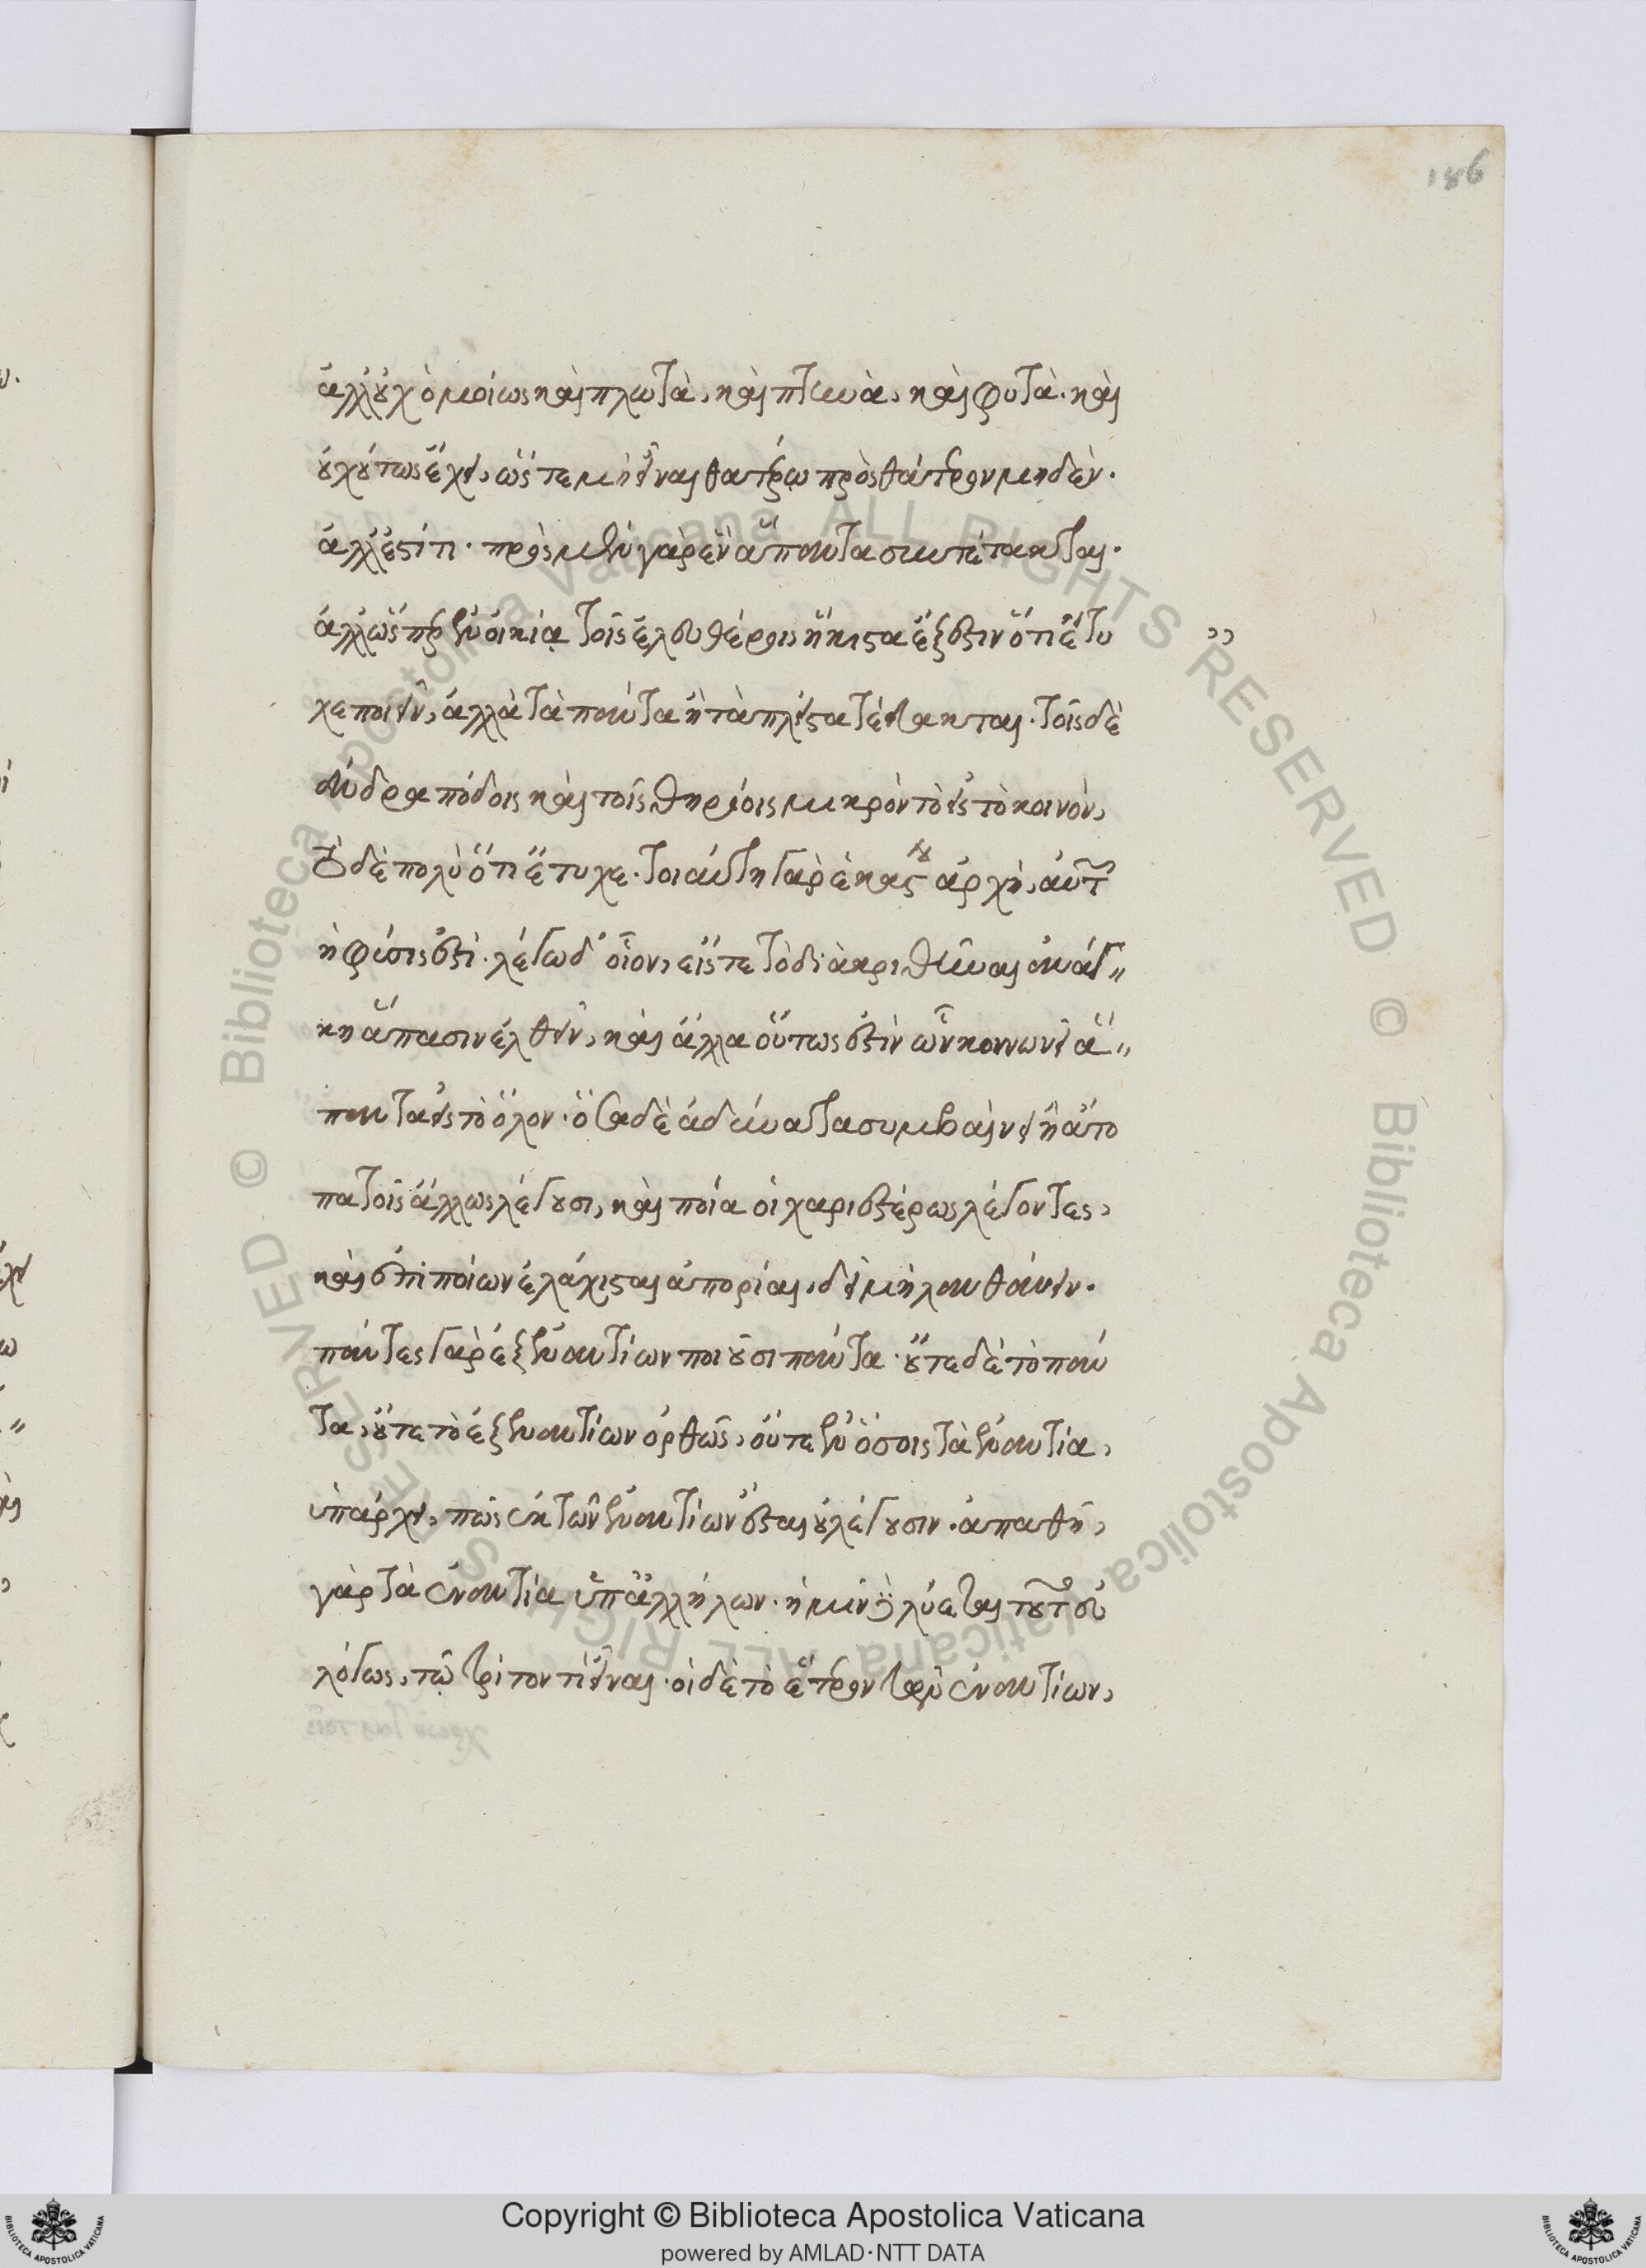 186
ἀλλ' οὐχ ὁμοίως καὶ πλωτὰ, καὶ πτηνὰ, καὶ φυτὰ. καὶ
οὐχ οὕτως ἔχει, ὥστε μὴ εἶναι θατέρῳ πρὸς θάτερον μηδὲν.
ἀλλ' ἔστι τι. πρὸς μὲν γὰρ ἓν ἅπαντα συντέτακται.
ἀλλ' ὥσπερ ἐν οἰκίᾳ τοῖς ἐλευθέροις ἥκιστα ἔξεστιν ὅτι ἔτυ
χε ποιεῖν, ἀλλὰ τὰ πάντα ἢ τὰ πλεῖστα τέτακται. τοῖς δὲ
ἀνδραπόδοις καὶ τοῖς θηρίοις μικρὸν τὸ εἰς τὸ κοινὸν,
τὸ δὲ πολὺ ὅτι ἔτυχε. τοιαύτη γὰρ ἑκάστου ἀρχὴ, αὐτῶν
ἡ φύσις ἐστὶ. λέγω δ' οἷον, εἴς τε τὸ διακριθῆναι ἀνάγ"
κη ἅπασιν ἐλθεῖν, καὶ ἄλλα οὕτως ἐστὶν ὧν κοινωνεῖ ἅ"
παντα εἰς τὸ ὅλον. ὅσα δὲ ἀδύνατα συμβαίνει ἢ ἄτο
πα τοῖς ἄλλως λέγουσι, καὶ ποία οἱ χαριεστέρως λέγοντες,
καὶ ἐπὶ ποίων ἐλάχισται ἀπορίαι, δεῖ μὴ λανθάνειν.
πάντες γὰρ ἐξ ἐναντίων ποιοῦσι πάντα. οὔτε δὲ τὸ πάν
τα, οὔτε τὸ ἐξ ἐναντίων ὀρθῶς, οὔτε ἐν ὅσοις τὰ ἐναντία,
ὑπάρχει, πῶς ἐκ τῶν ἐναντίων ἔσται οὐ λέγουσιν. ἀπαθῆ,
γὰρ τὰ ἐναντία ὑπ' ἀλλήλων. ἡμῖν δὲ λύεται τοῦτο εὐ
λόγως, τῷ τρίτον τι εἶναι. οἱ δὲ τὸ ἕτερον τῶν ἐναντίων,
Copyright © Biblioteca Apostolica Vaticana
powered by AMLAD·NTT DATA